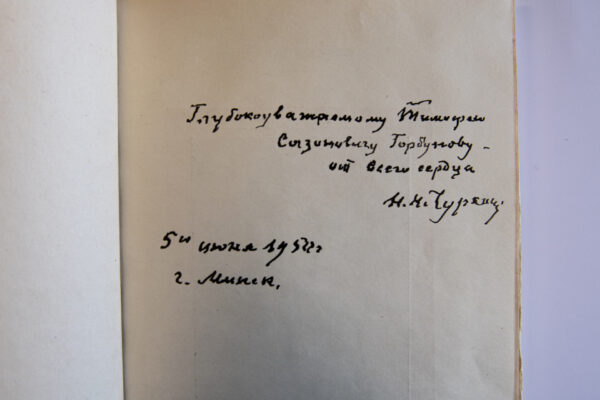 Глубокоуважаемому Тимофею
Сазоновичу Горбунову –
от всего сердца
Н. Н. Чуркин
июня
г. Минск.